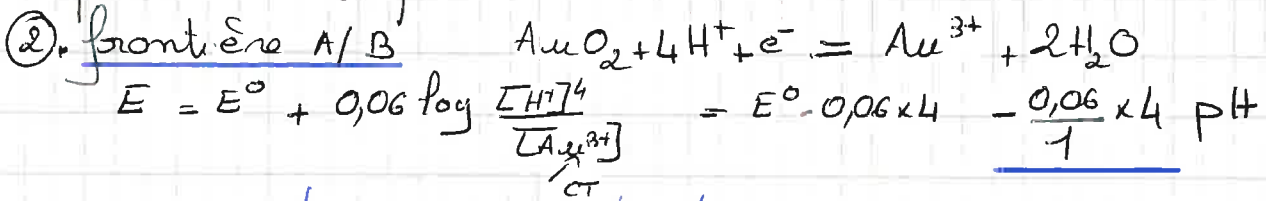 ②. frontière A/B AuO₂ + 4H⁺ + e⁻ = Au³⁺ + 2H₂O
E = E⁰ + 0,06 log [H⁺]⁴/[Au³⁺] = E⁰ - 0,06 x 4 - 0,06/1 x 4 pH
CT